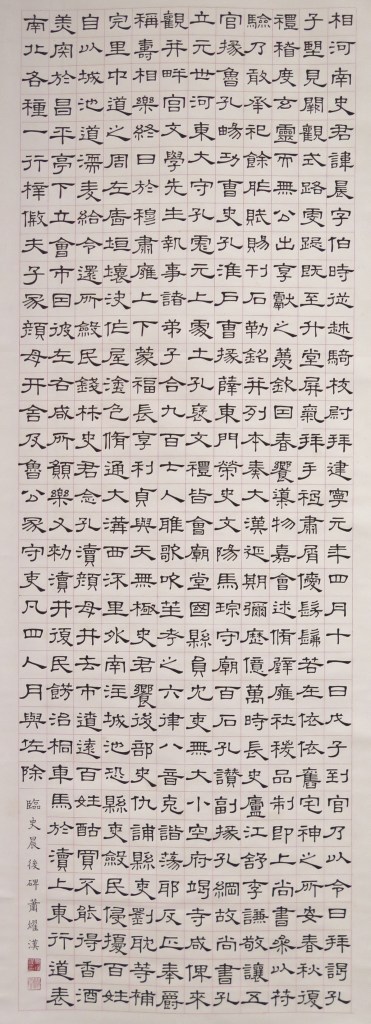 相河南史君諱晨字伯時從越騎校尉拜建寧元年四月十一日戊子到官乃以令日拜謁孔
子望見闕觀式路虔跽既至升堂屏氣拜手祗肅屑僾髣髴若在依依舊宅神之所安春秋復
禮稽度玄靈而無公出享獻之薦欽因春饗導物嘉會述脩璧廱社稷品制即上尚書參以符
驗乃敢承祀餘胙賦賜刊石勒銘并列本奏大漢延期彌歷億萬時長史廬江舒李謙敬讓五
官掾魯孔暢功曹史孔淮戶曹掾薛東門榮史文陽馬琮守廟百石孔讚副掾孔綱故尚書孔
立元世河東大守孔彪元上處土孔褒文禮皆會廟堂國縣員冗吏無大小空府竭寺咸俾來
觀并畔宮文學先生執事諸弟子合九百士人雅歌吹笙考之六律八音克諧蕩邪反正奉爵
稱壽相樂終日於穆肅廱上下蒙福長享利貞與天無極史君饗後部史仇誧縣吏劉耽等補
完里中道之周左廧垣壞決作屋塗色脩通大溝西流里外南注城池恐縣吏斂民侵擾百姓
自以城池道濡麥給令還所斂民錢材史君念孔瀆顏母井去市遼遠百姓酤買不能得香酒
美肉於昌平亭下立會市因彼左右咸所願樂又勑瀆井復民餝治桐車馬於瀆上東行道表
南北各種一行梓假夫子冢顏母开舍及魯公冢守吏凡四人月與佐除
臨史晨後碑蕭燿漢